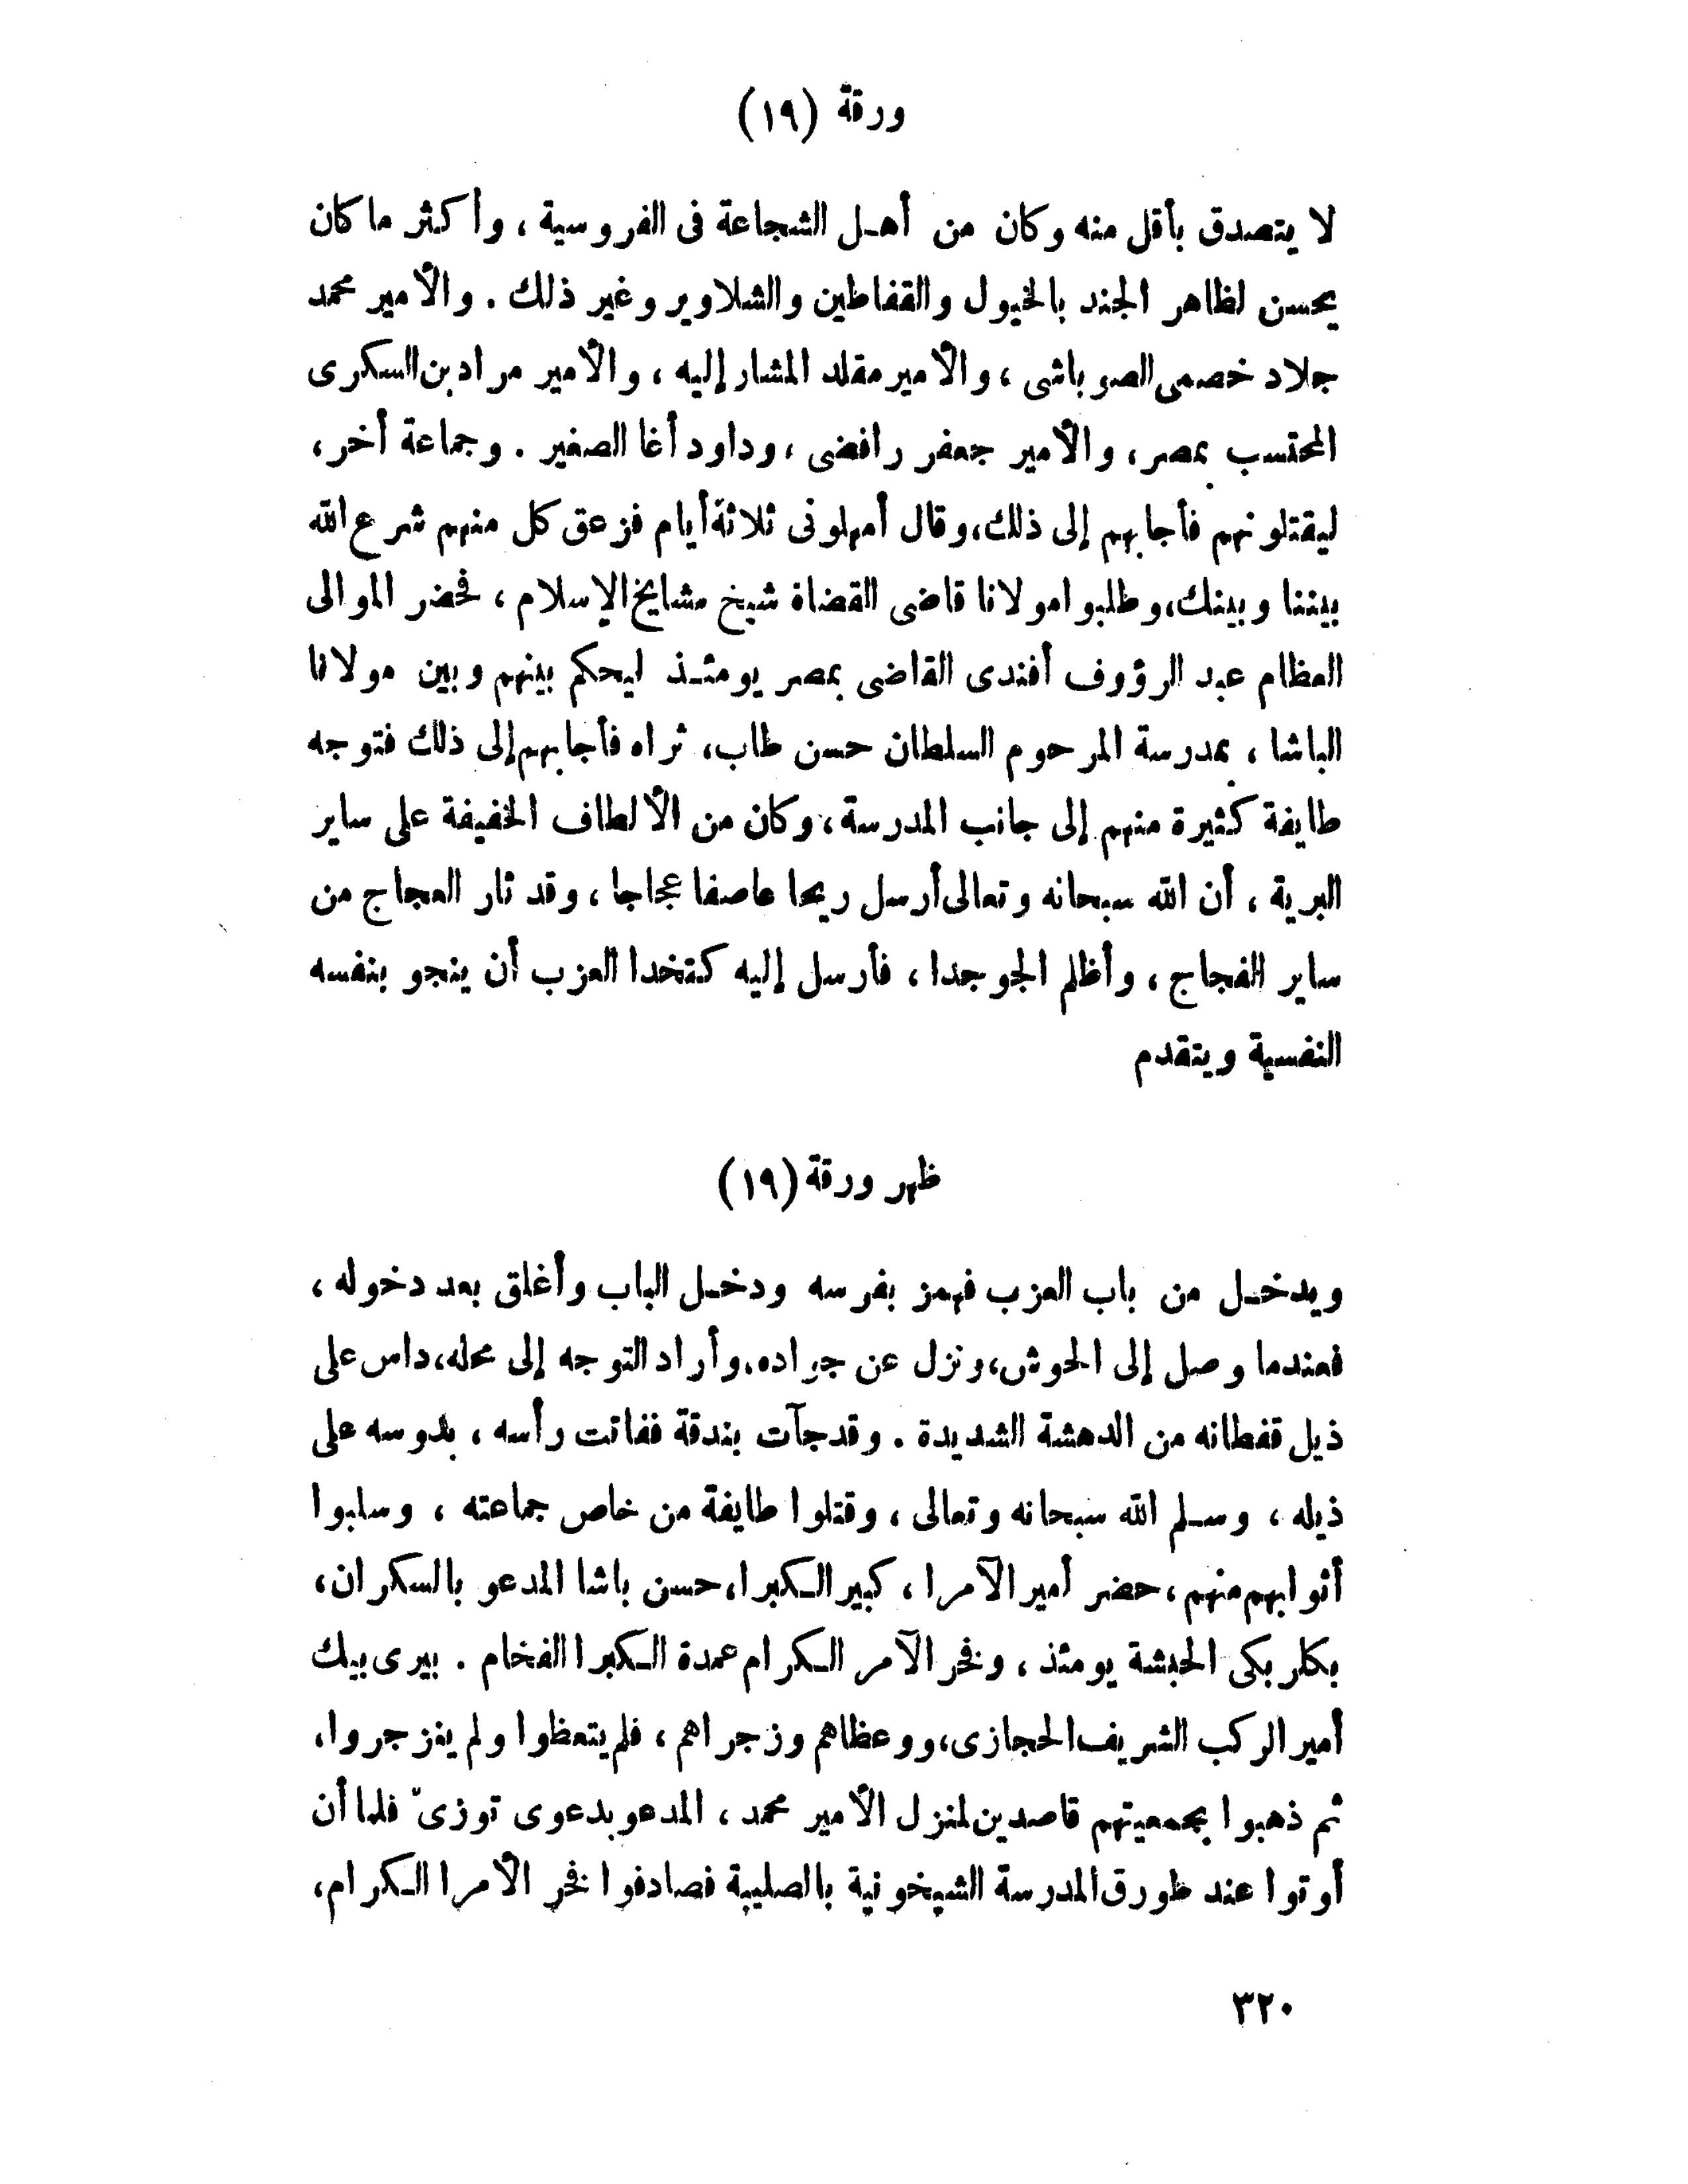 ورقة (١٩)
لا يتصدق بأقل منه وكان من أهل الشجاعة فى الفروسية ، وأكثر ما كان
يحسن لظاهر الجند بالخيول والقفاطين والشلاوير وغير ذلك . والأمير محمد
جلاد خصمى الصوباشى ، والأمير مقلد المشار إليه ، والأمير مراد بن السكرى
المحتسب بمصر ، والأمير جعفر رافضى ، وداود أغا الصغير . وجماعة أخر ،
ليقتلونهم فأجابهم إلى ذلك ، وقال أمهلونى ثلاثة أيام فزعق كل منهم شرع الله
بيننا وبينك ، وطلبوا مولانا قاضى القضاة شيخ مشايخ الإسلام ، فحضر الموالى
العظام عبد الرؤوف أفندى القاضى بمصر يومئذ ليحكم بينهم وبين مولانا
الباشا ، بمدرسة المرحوم السلطان حسن طاب ، ثراه فأجابهم إلى ذلك فتوجه
طايفة كثيرة منهم إلى جانب المدرسة ، وكان من الألطاف الخفيفة على ساير
البرية ، أن الله سبحانه وتعالى أرسل ريحا عاصفا عجاجا ، وقد ثار العجاج من
ساير الفجاج ، وأظلم الجو جدا ، فأرسل إليه كتخدا العزب أن ينجو بنفسه
النفسية ويتقدم
ظهر ورقة (١٩)
ويدخل من باب العزب فهمز بفرسه ودخل الباب وأغلق بعد دخوله ،
فعندما وصل إلى الحوش ، ونزل عن جواده ، وأراد التوجه إلى محله ، داس على
ذيل قفطانه من الدهشة الشديدة . وقد جآت بندقة ففاتت رأسه ، بدوسه على
ذيله ، وسلم الله سبحانه وتعالى ، وقتلوا طايفة من خاص جماعته ، وسلبوا
أثوابهم منهم ، حضر أمير الآمرا ، كبير الكبرا ، حسن باشا المدعو بالسكران ،
بكلر بكى الحبشة يومئذ ، وفخر الآمر الكرام عمدة الكبرا الفخام . بيرى بيك
أمير الركب الشريف الحجازى ، ووعظاهم وزجراهم ، فلم يتعظوا ولم ينزجروا ،
ثم ذهبوا بجمعيتهم قاصدين لمنزل الأمير محمد ، المدعو بدعوى توزىّ فلما أن
أوتوا عند طورق المدرسة الشيخونية بالصليبة فصادفوا فخر الأمرا الكرام ،
٣٢٠